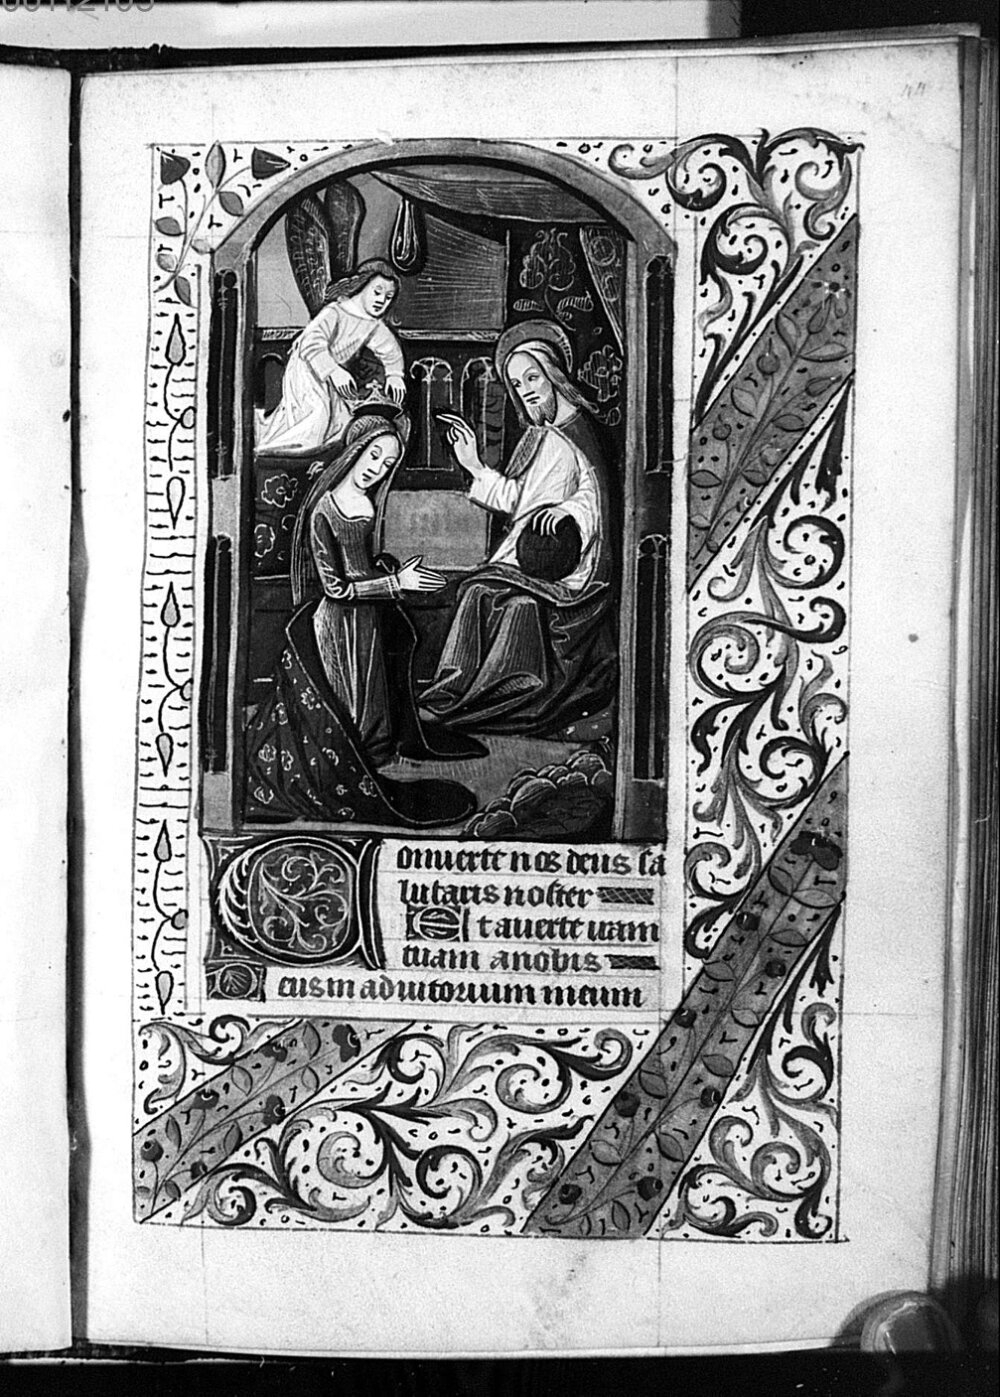 00112103
44
Conuerte nos deus sa
lutaris noster
Et auerte iram
tuam a nobis
Deus in adiutorium meum